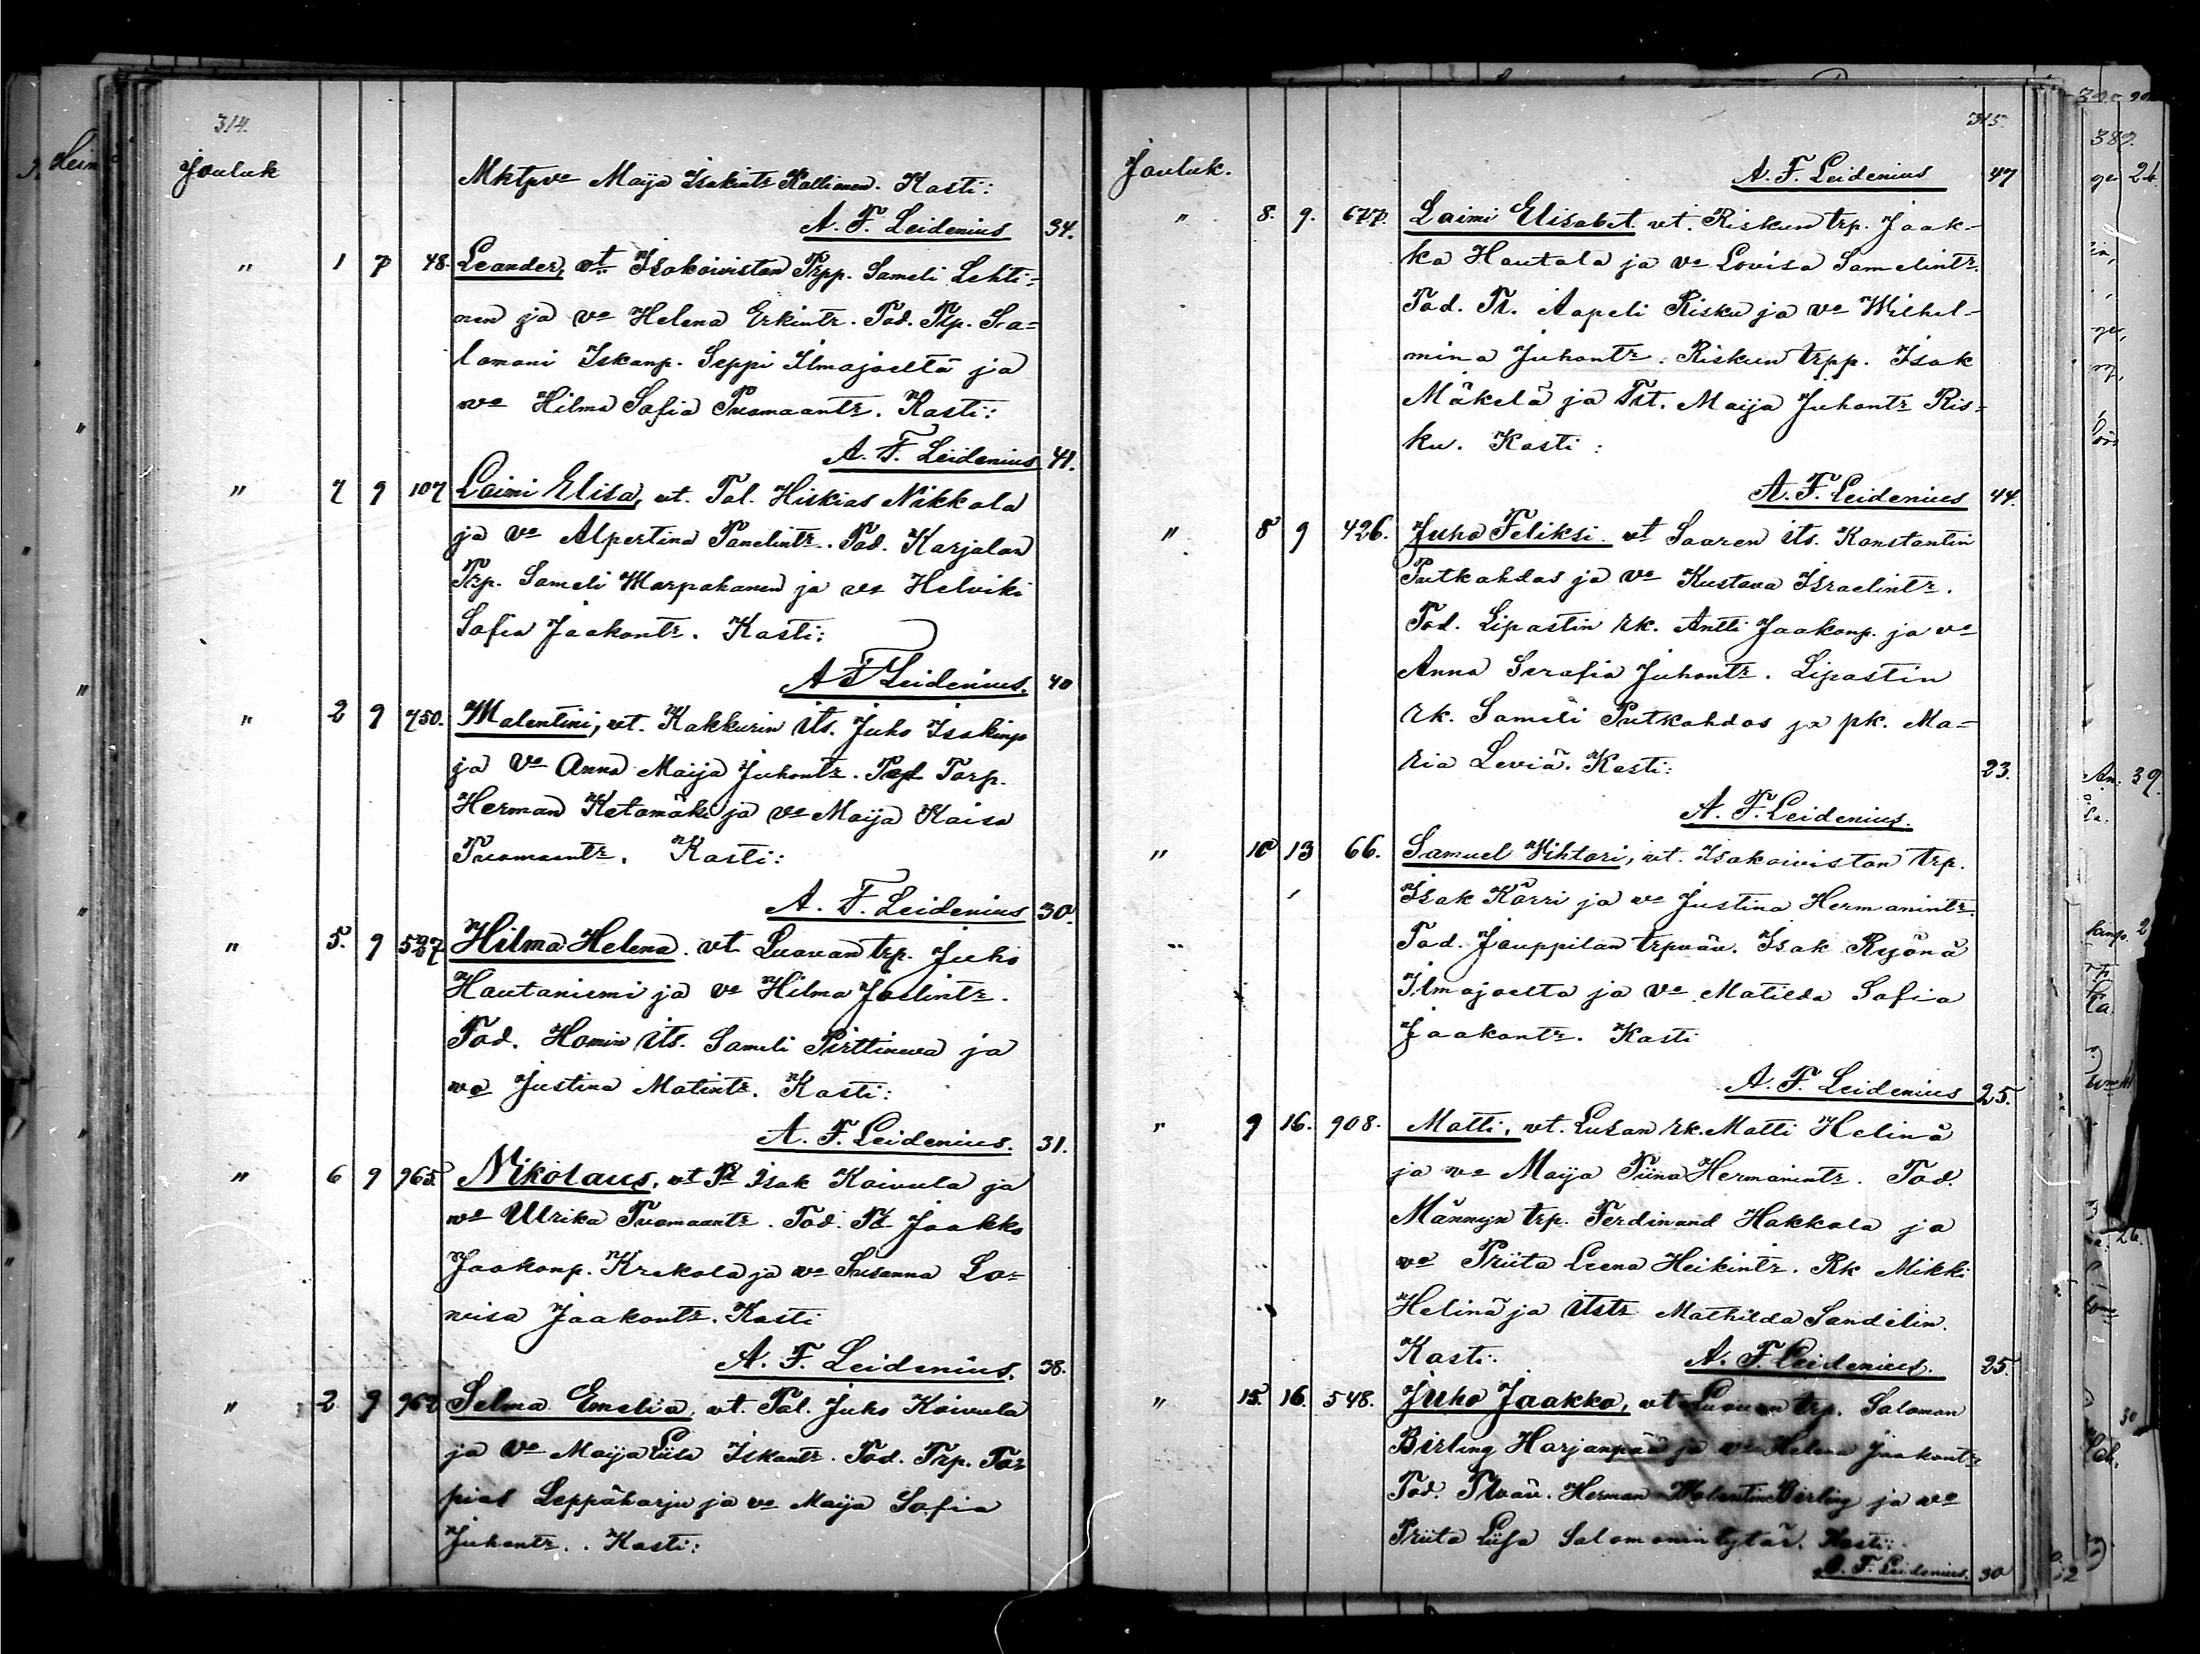 314.
Jouluk
Mktpve Maija Isakintr Kallionen. Kasti:
A. F. Leidenius 34.
" 1 7 48. Leander, vt. Isokoivistan Trpp. Sameli Lehti-
nen ja ve Helena Erkintr. Tod. Trp. Sa-
lomoni Iskanp. Seppi Ilmajoelta ja
ve Hilma Sofia Tuomaantr. Kasti:
A. F. Leidenius 41.
" 7 9 107 Laimi Elisa, vt. Tal. Hiskias Nikkola
ja ve Alpertina Tanelintr. Tod. Karjalan
Trp. Sameli Marpahanen ja ve Helviki
Sofia Jaakontr. Kasti:
A F Leidenius. 40
" 2 9 750. Malentini, vt. Kakkurin its. Juho Isakinp
ja ve Anna Maija Juhontr. Tod Torp.
Herman Ketomäki ja ve Maija Kaisa
Tuomaantr. Kasti:
A. F. Leidenius 30.
" 5. 9 527 Hilma Helena. vt. Luovan trp. Juho
Hautaniemi ja ve Hilma Joelintr.
Tod. Homin its. Sameli Pirttineva ja
ve Justina Matintr. Kasti:
A. F. Leidenius. 31.
" 6 9 965. Nikolaus, vt Tl Isak Koivula ja
ve Ulrika Tuomaantr. Tod. Tl Jaakko
Jaakonp. Krekola ja ve Susanna Lo-
visa Jaakontr. Kasti
A. F. Leidenius. 38.
" 2. 9 962 Selma Emelia, vt. Tal. Juho Koivula
ja ve Maija Liisa Iskantr. Tod. Trp. To-
pias Leppäharju ja ve Maija Sofia
Juhontr. Kasti:
315.
Jouluk.
A. F. Leidenius 47
" 8. 9. 677. Laimi Elisabet vt. Riskun trp. Jaak-
ka Hautala ja ve Lovisa Samelintr.
Tod. Tl. Aapeli Risku ja ve Wilhel-
mina Juhontr. Riskun trpp. Isak
Mäkelä ja Tlt. Maija Juhontr Ris-
ku. Kasti:
A. F. Leidenius 44.
" 8 9 426. Juho Feliksi. vt Saaren its. Konstantin
Putkahdas ja ve Kustava Israelintr.
Tod. Lipastin rk. Antti Jaakonp. ja ve
Anna Serafia Juhontr. Lipastin
rk. Sameli Putkahdas ja pk. Ma-
ria Leviä. Kasti: 23.
A. F. Leidenius.
" 10 13 66. Samuel Vihtori, vt. Isokoivistan trp.
Isak Kärri ja ve Justina Hermanintr.
Tod. Jouppilan trpväv. Isak Ryönä
Ilmajoelta ja ve Matilda Sofia
Jaakontr. Kasti
A. F. Leidenius 25.
" 9 16. 908. Matti, vt. Luran rk. Matti Helinä
ja ve Maija Tiina Hermanintr. Tod.
Männyn trp. Ferdinand Hakkola ja
ve Priita Leena Heikintr. Rk Mikki
Helinä ja itstr Mathilda Sandelin.
Kasti. A. F Leidenius. 25.
" 15. 16. 548. Juho Jaakko, vt Luovan trp. Saloman
Birling Harjanpää ja ve Helena Jaakontr
Tod. Tlväv. Herman Malentin Birling ja ve
Priita Liisa Salomonintytär. Kasti:
A. F. Leidenius. 30